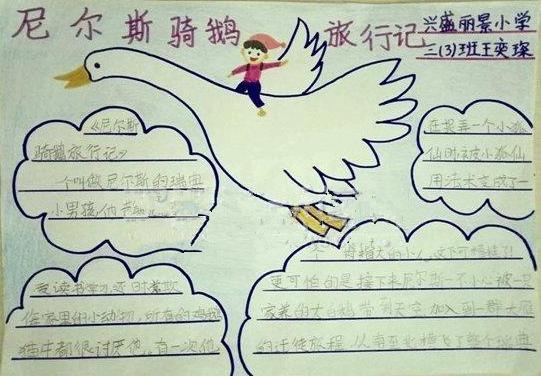 尼尔斯骑鹅旅行记
兴盛丽景小学
三(3)班王奕琛
《尼尔斯
骑鹅旅行记》
一个叫做尼尔斯的瑞典
小男孩,他
爱读书学习,还时常欺
他家里的小动物,所有的鸡鹅
猫牛都很讨厌他。有一次他
在捉弄一个小狐
仙时被小狐仙
用法术变成了一
个拇指大的小人,这下可惨了!
更可怕的是接下来尼尔斯一不小心被一只
家养的大白鹅带到天空加入到一群大雁
的迁徙旅程,从南至北横飞了整个瑞典